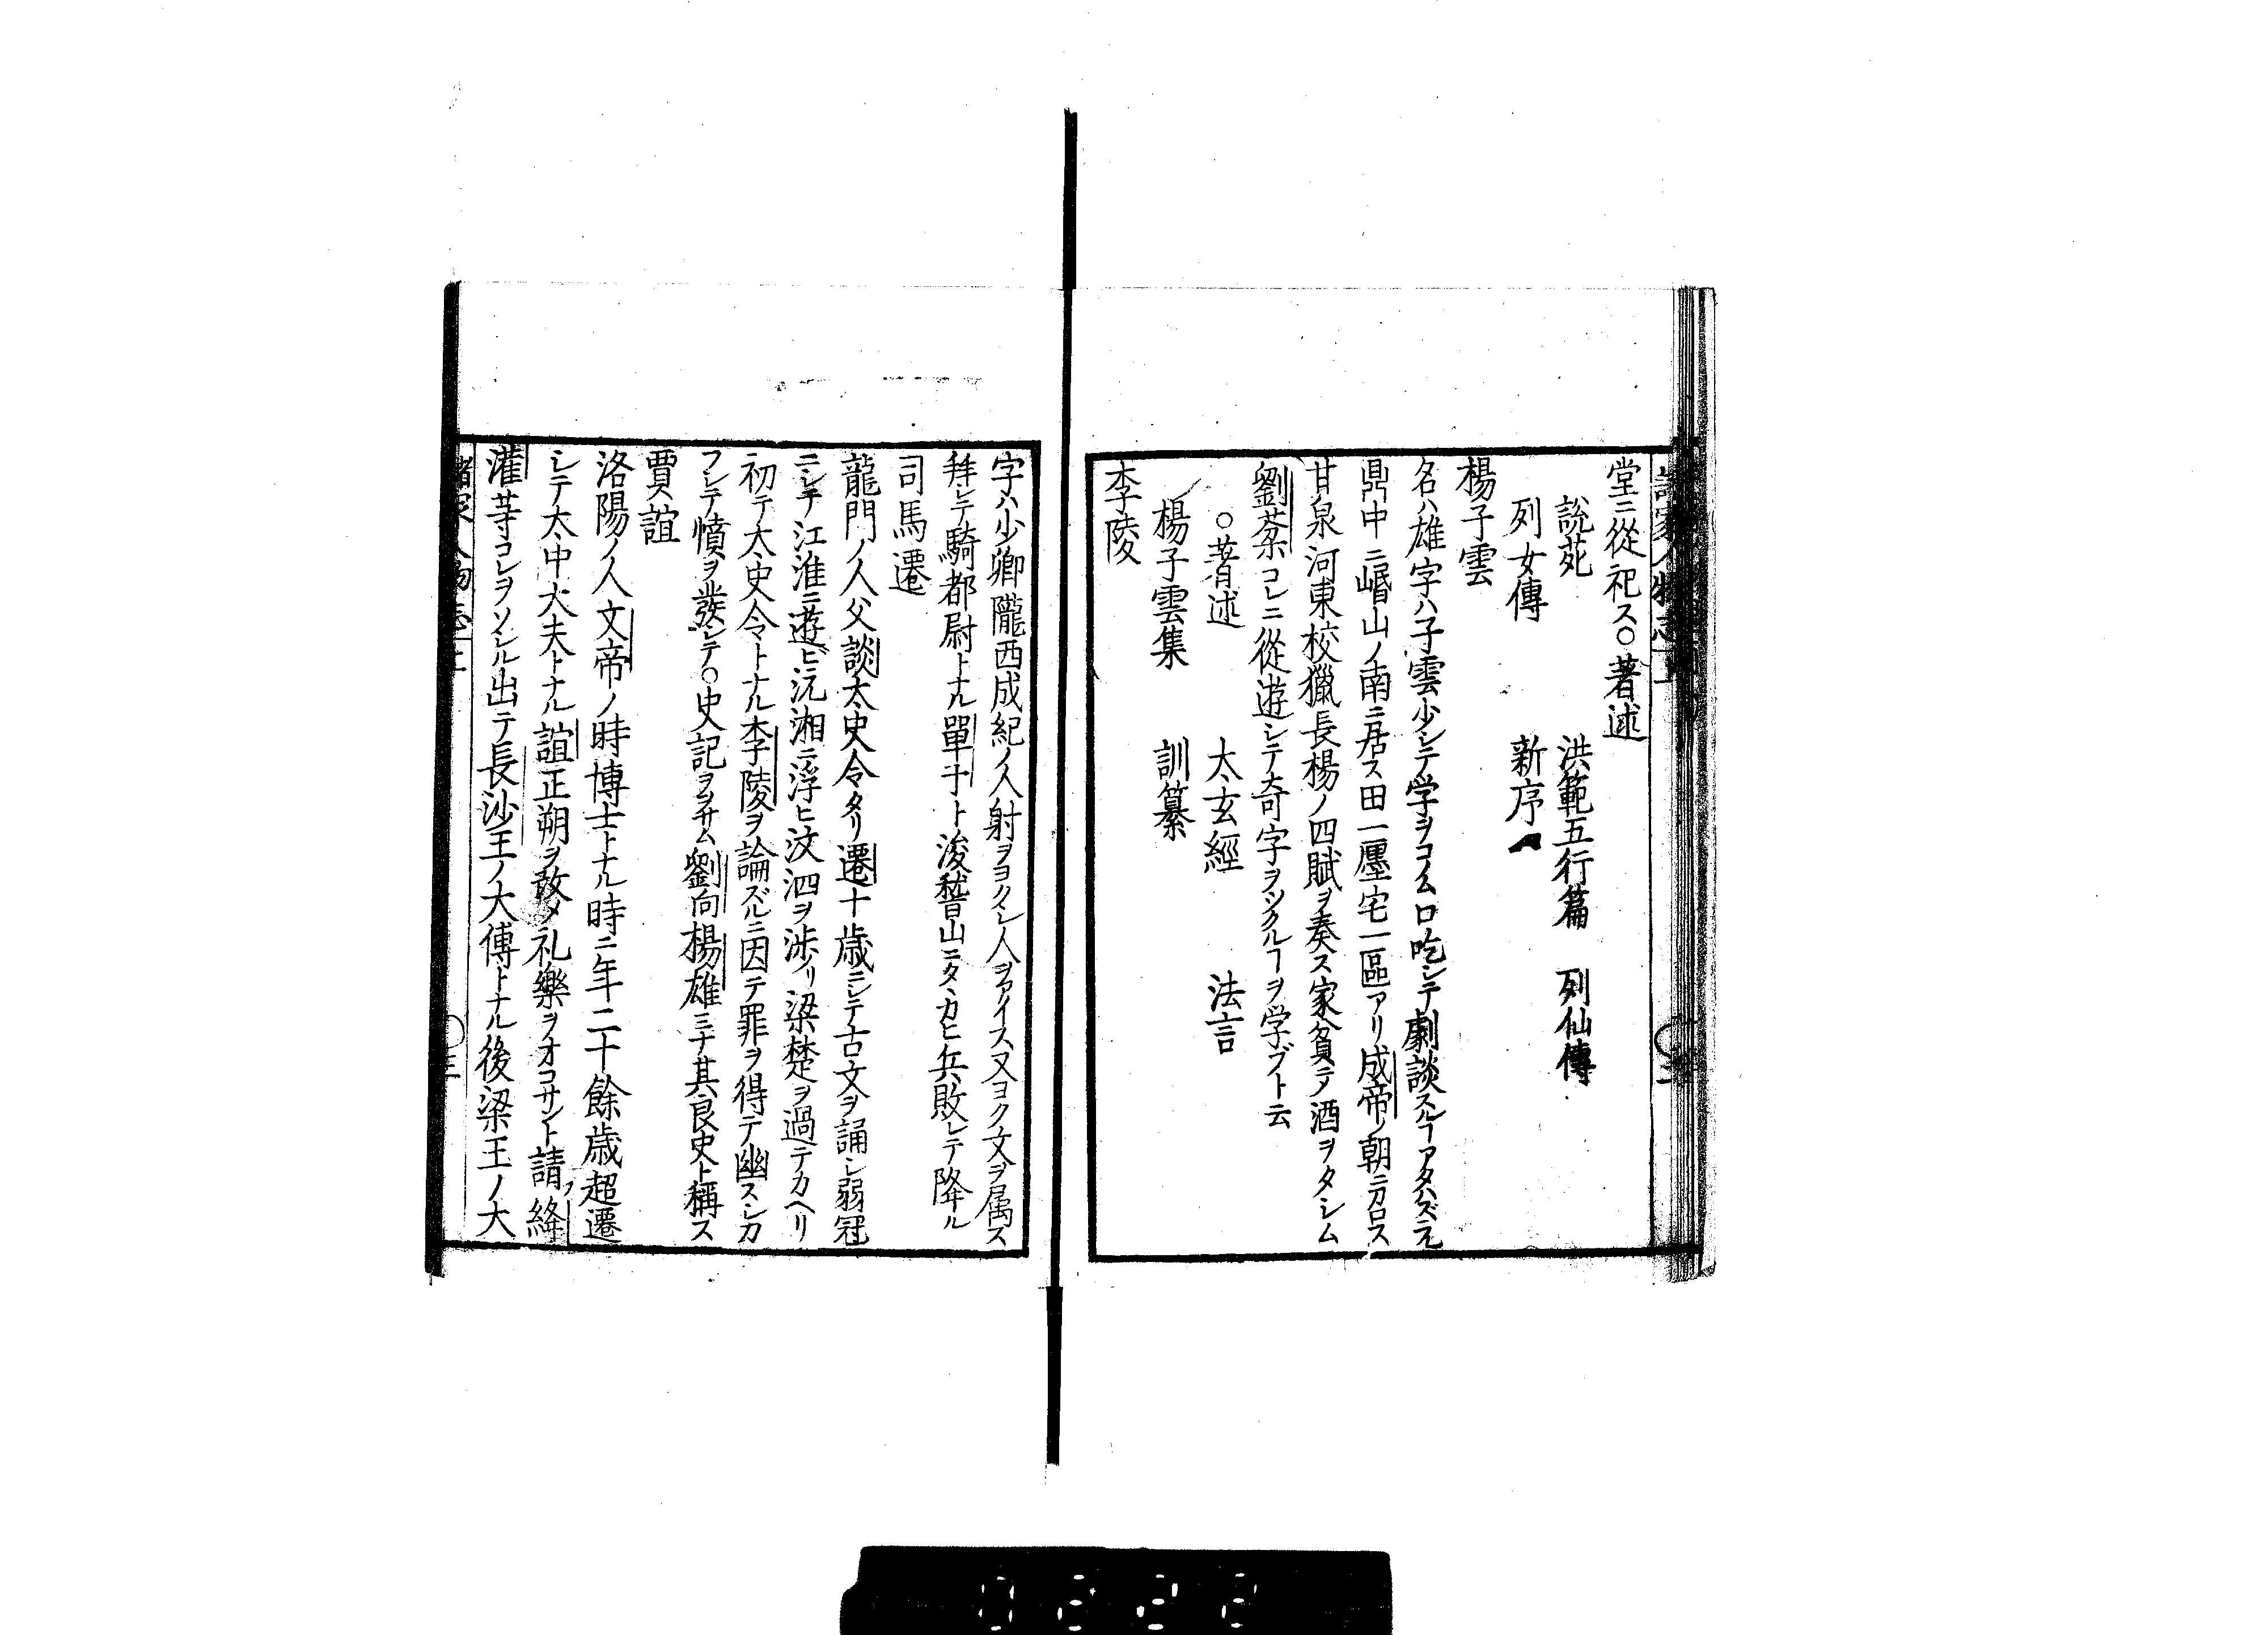 堂ニ從祀ス○著述
説苑　洪範五行篇　列仙傳
列女傳　新序
楊子雲
名ハ雄字ハ子雲少シテ学ヲコム口吃シテ劇談スルヿアタハズ元
鼎中ニ㟭山ノ南ニ居ス田一㕓宅一區アリ成帝ノ朝ニ
甘泉河東校獵長楊ノ四賦ヲ奏ス家貧テ酒ヲタシム
劉棻コレニ從遊シテ奇字ヲツクルヿヲ学ブト云
○著述　太玄經　法言
楊子雲集　訓纂
李陵
字ハ少卿隴西成紀ノ人射ヲヨクシ人ヲアイス又ヨク文ヲ属ス
拜シテ騎都尉トナル單于ト浚稽山ニタヽカヒ兵敗レテ降ル
司馬遷
龍門ノ人父談太史令タリ遷十歳ニシテ古文ヲ誦シ弱冠
ニシテ江淮ニ遊ヒ沅湘ニ浮ヒ汶泗ヲ渉リ梁楚ヲ過テカヘリ
初テ大史令トナル李陵ヲ論ズルニ因テ罪ヲ得テ幽スシカ
フシテ憤ヲ發シテ○史記ヲヲサム劉向楊雄ミナ其良史ト稱ス
賈誼
洛陽ノ人文帝ノ時博士トナル時ニ年二十餘歳超遷
シテ太中大夫トナル誼正朔ヲ改メ礼樂ヲオコサント請フ絳
灌䓁コレヲソシル出テ長沙王ノ大傅トナル後梁王ノ大